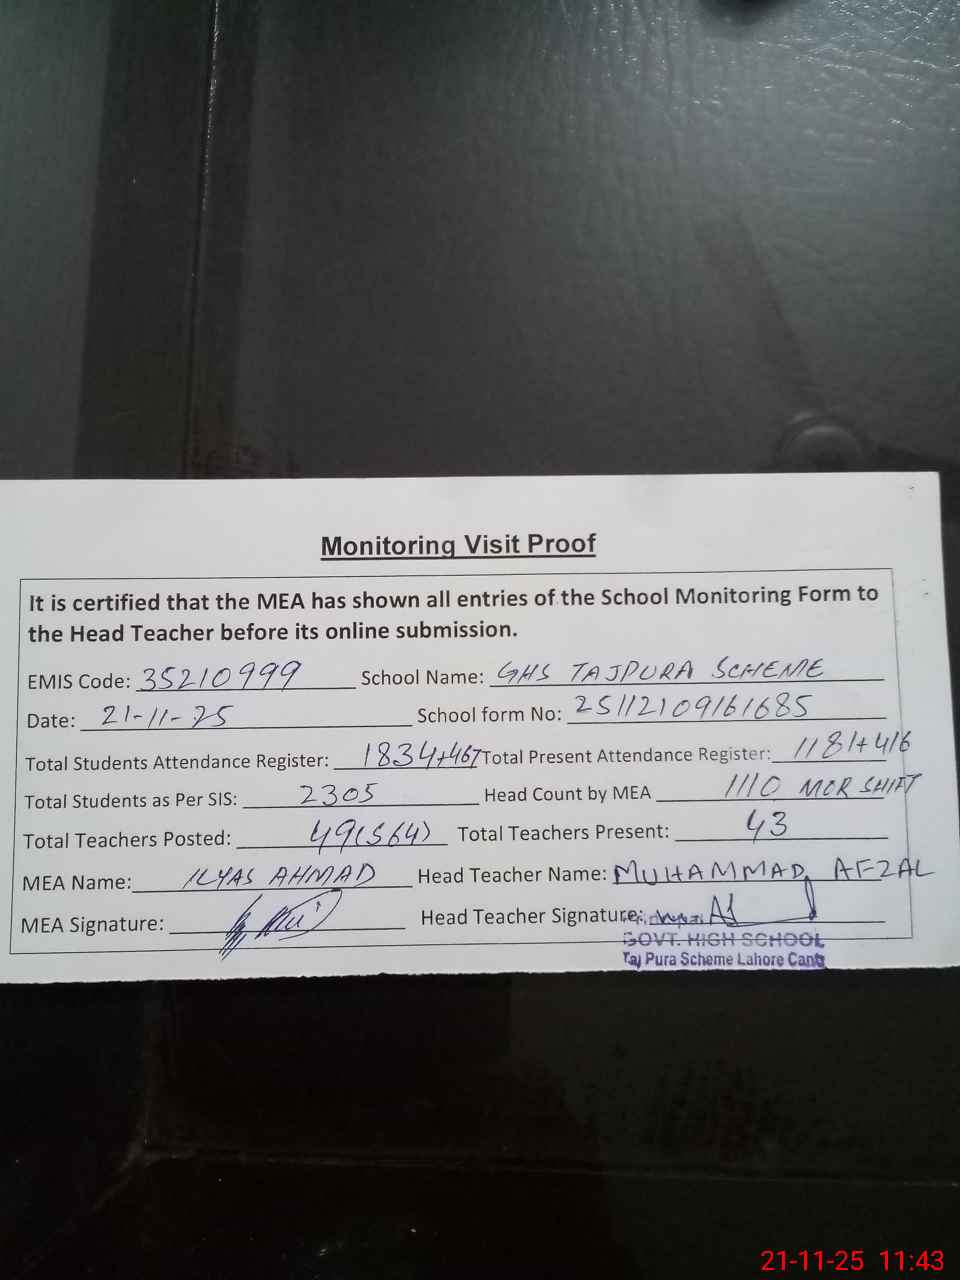 Monitoring Visit Proof
It is certified that the MEA has shown all entries of the School Monitoring Form to
the Head Teacher before its online submission.
EMIS Code: 35210999 School Name: GHS TAJPURA SCHEME
Date: 21-11-25 School form No: 25112109161685
Total Students Attendance Register: 1834+467 Total Present Attendance Register: 1181+416
Total Students as Per SIS: 2305 Head Count by MEA 1110 MOR SHIFT
Total Teachers Posted: 49(S64) Total Teachers Present: 43
MEA Name: ILYAS AHMAD Head Teacher Name: MUHAMMAD AFZAL
MEA Signature: Head Teacher Signature:
GOVT. HIGH SCHOOL
Taj Pura Scheme Lahore Cantt
21-11-25 11:43